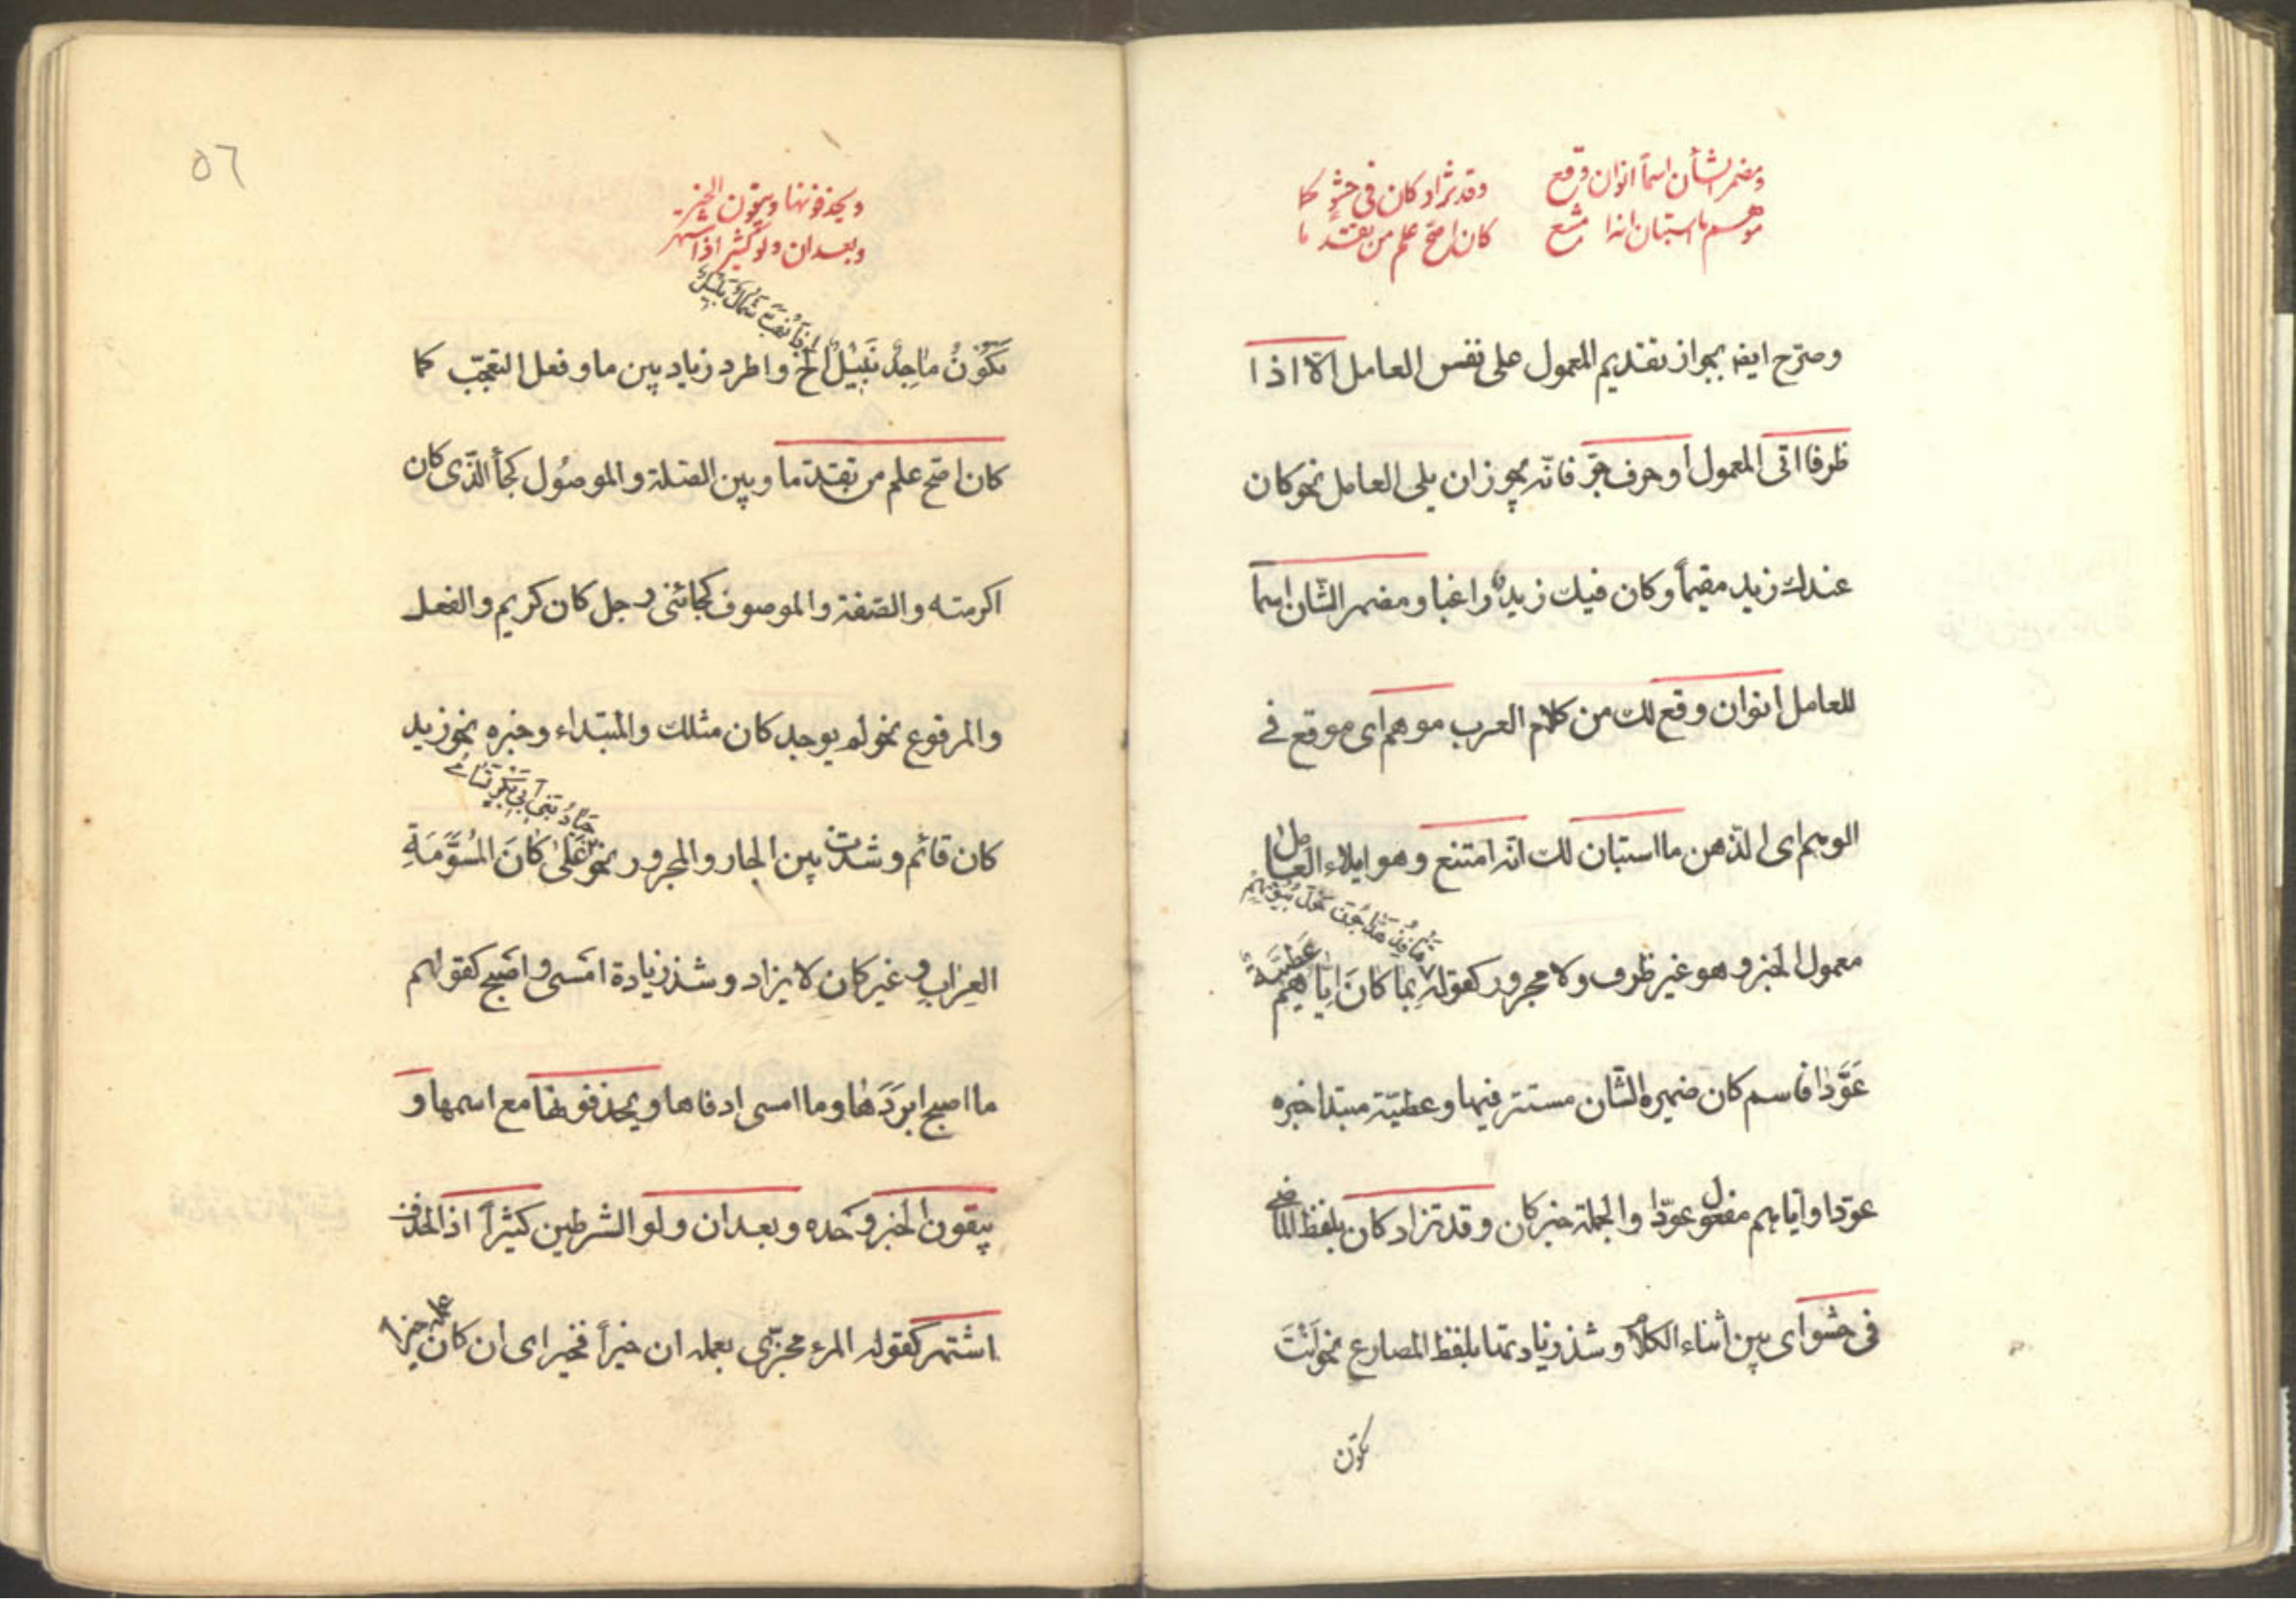 ومضمر الشأن اسما انوان وقع
موهم ما استبان انه امتنع
وقد تزاد كان في حشو كما
كان اصح علم من تقدما
وصرّح ايضه بجواز تقديم المعمول على نفس العامل الّا اذا
ظرفا اتى المعمول أو حرف جرّ فانّه يجوز ان يلى العامل نحو كان
عندك زيد مقيماً وكان فيك زيدٌ راغبا ومضمر الشّان اسماً
للعامل انوان وقع لك من كلام العرب موهم اى موقع فے
الوهم اى الذّهن ما استبان لك انّه امتنع وهو ايلاء العامل
قنافذ هدّاجون حول بيوتهم
معمول الخبر وهو غير ظرف ولا مجرور كقوله بِما كانَ اِيّاهُم عَطيّةٌ
عَوَّدا فاسم كان ضميره الشّان مستتر فيها وعطيّة مبتدا خبره
عوّدا وايّاهم مفعول عوّدا والجملة خبر كان وقد تزاد كان بلفظ الماضے
فى حشو اى بين اثناء الكلام وشذ زيادتها بلفظ المضارع نحو اَنْتَ
تكون
٥٦
ويحذفونها ويبقون الخبر
وبعد ان ولو كثيرا ذا اشتهر
اِذا تَهُبُّ شَمْأَلٌ بَليلُ
تَكُوْنُ مٰاجِدٌ نَبيْلٌ الخ واطرد زياد بين ما وفعل التعجّب كما
كان اصحّ علم من تقدّما وبين الصّلة والموصُول كجأ الذّى كان
اكرمته والصّفة والموصوف كجائنى رجل كان كريم والفعل
والمرفوع نحو لم يوجد كان مثلك والمبتداء وخبره نحو زيد
جيادُ بَنى اَبى بَكرٍ تَسامٰى
كان قائم وشذت بين الجار والمجرور نحو عَلىٰ كٰانَ المُسَوَّمَةِ
العِرابِ وغير كان لا يزاد وشذ زيادة امسى واصبح كقولهم
ما اصبح ابرَدَهٰا وما امسى ادفاها ويحذفونها مع اسمها و
يبقون الخبر وَحده وبعد ان ولو الشرطين كثيراً اذا الحذف
اشتهر كقوله المرء مجزّى بعمله ان خيراً فخير اى ان كان عمله خيرا